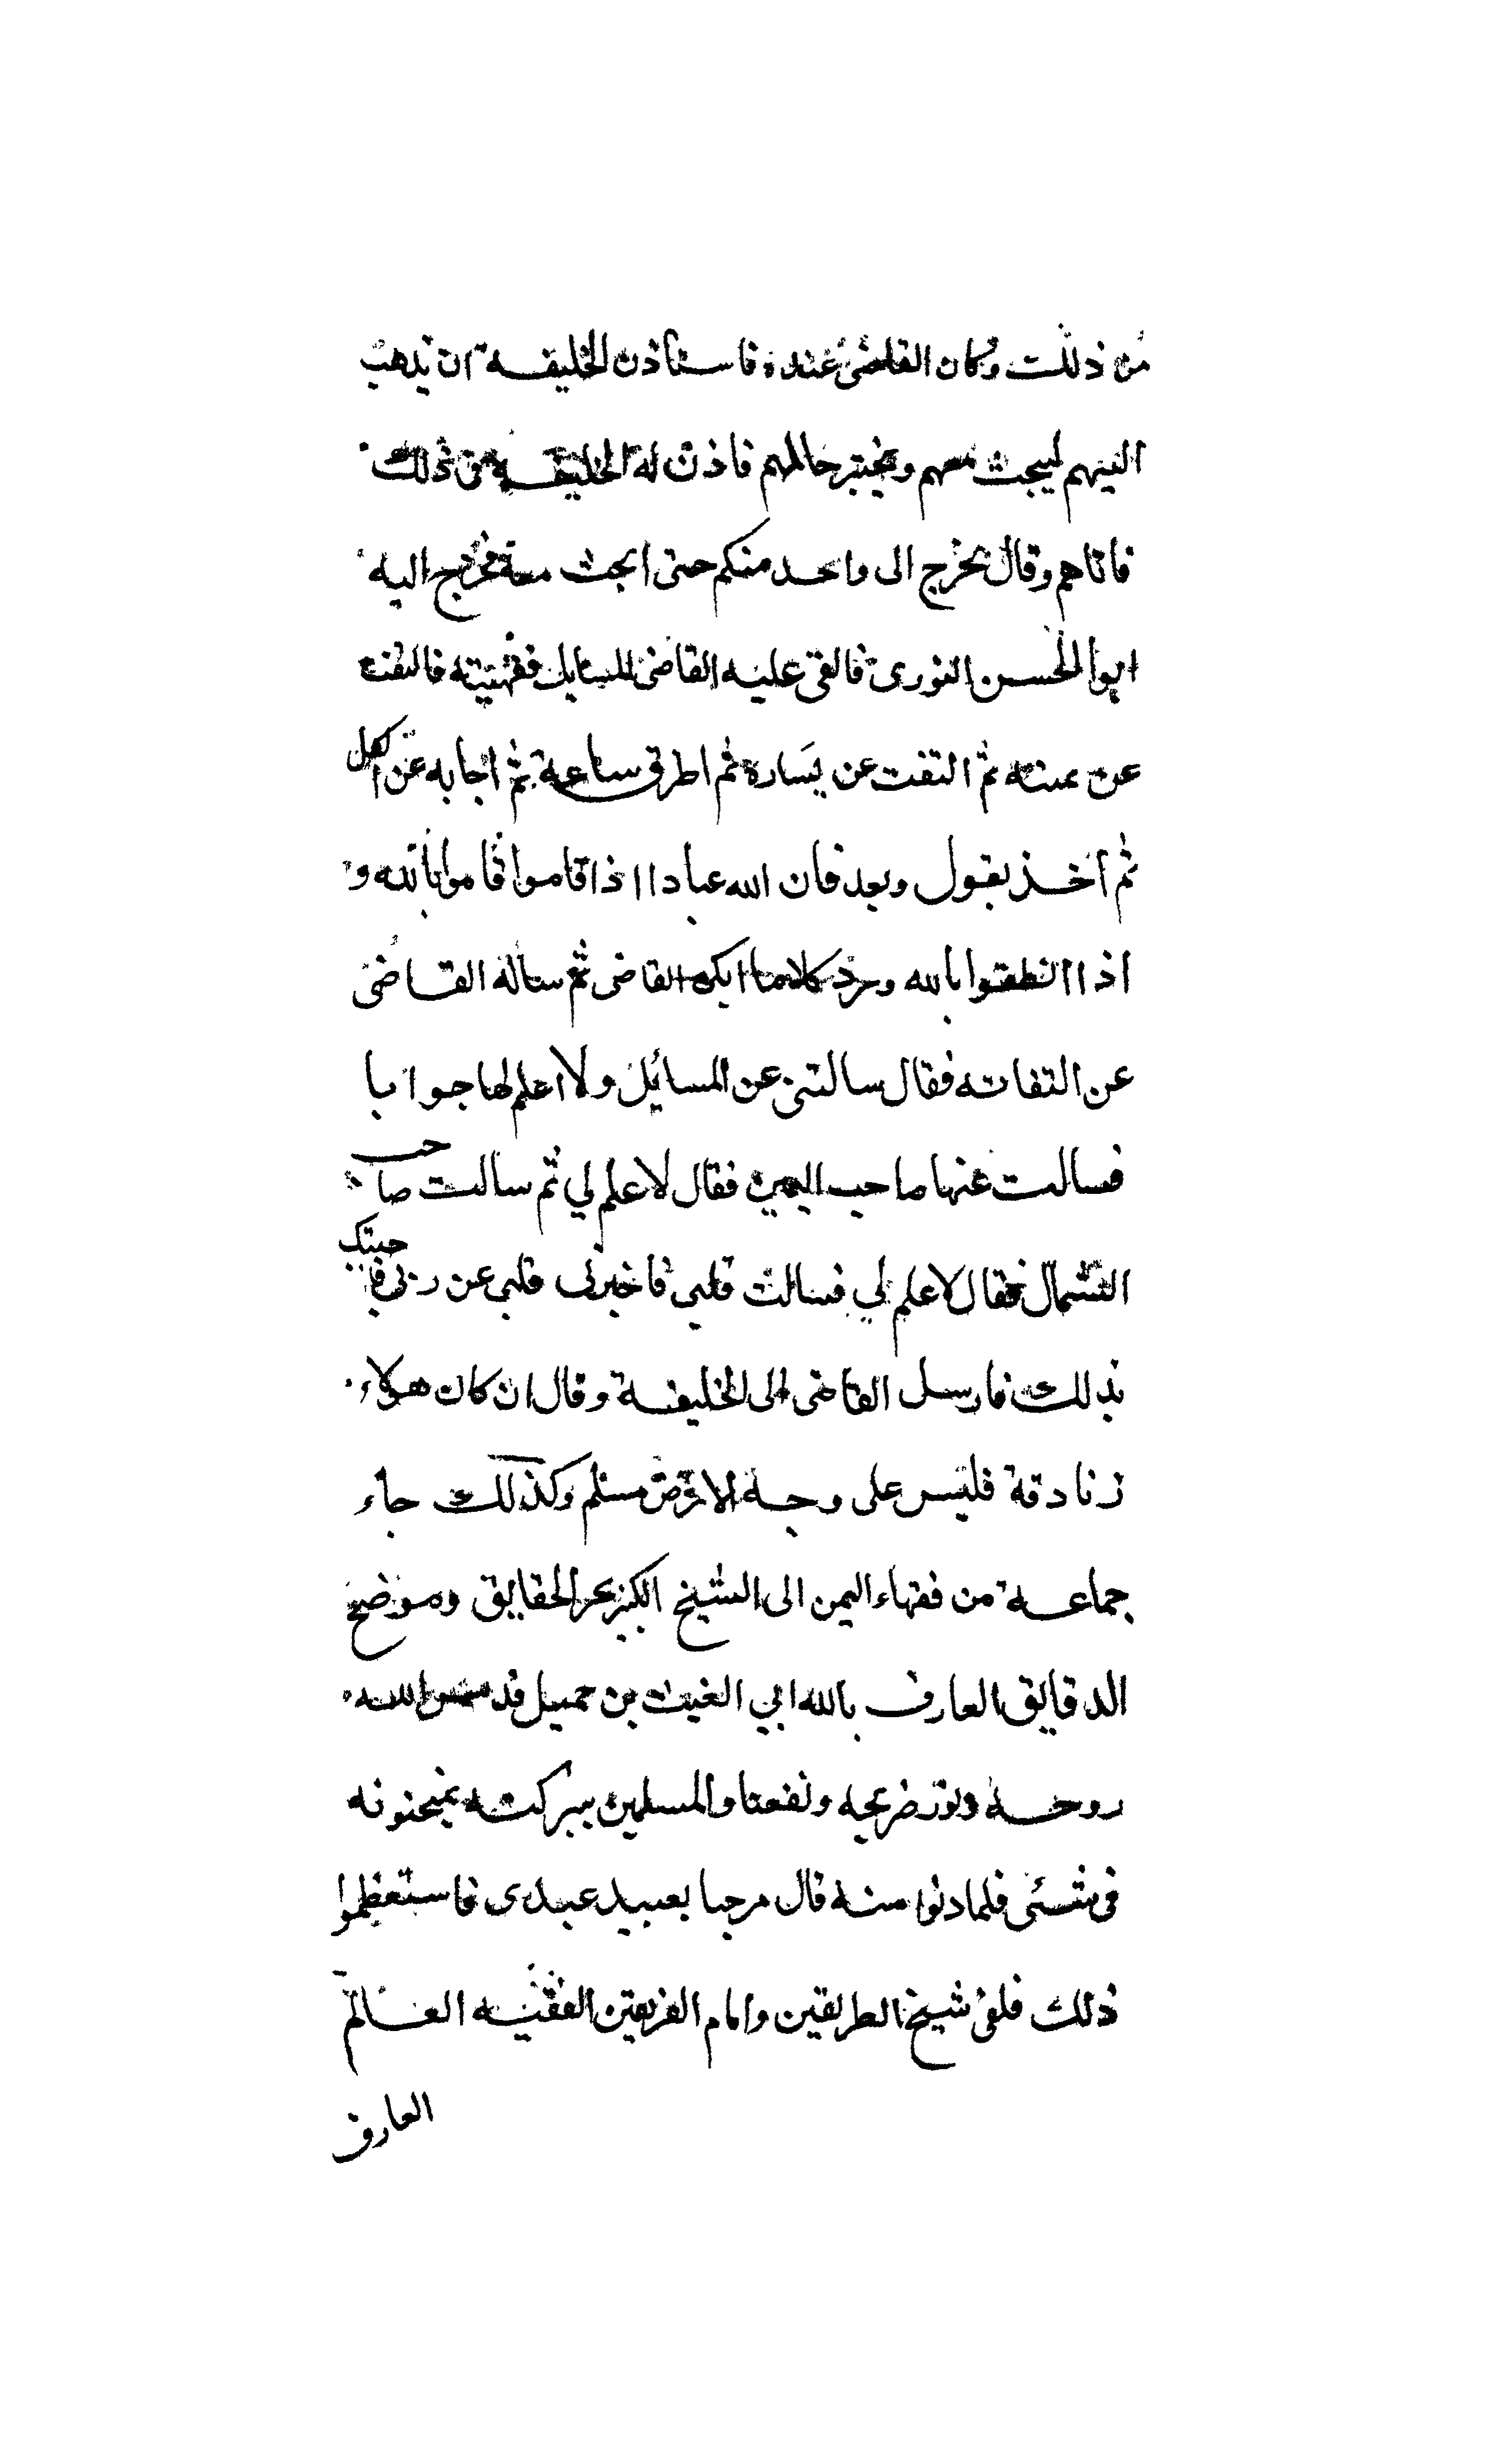 من ذلك وكان القاضي عنده فاستأذن الخليفة ان يذهب
اليهم ليبحث معهم ويختبر حالهم فاذن له الخليفة في ذلك
فاتاهم وقال يخرج الى واحد منكم حتى ابحث معه فخرج اليه
ابوا الحسن النورى فالقى عليه القاضى المسايل فقهيته فالتفت
عن يمينه ثم التفت عن يساره ثم اطرق ساعة ثم اجابه عن الكل
ثم أخذ يقول وبعد فان الله عبادا اذا قاموا قاموا بالله و
اذا انطقوا بالله وسرد كلاما ابكى القاضى ثم ساله القاضى
عن التفاته فقال سالتنى عن المسائل ولا اعلم لها جوابا
فسالت عنها صاحب اليمين فقال لا علم لي ثم سالت صاحب
الشمال فقال لا علم لي فسالت قلبى فاخبرنى قلبى عن ربى فاجبتك
بذلك فارسل القاضى الى الخليفة وقال ان كان هولاء
زنادقة فليس على وجه الارض مسلم وكذلك جاء
جماعة من فقهاء اليمن الى الشيخ الكبير بحر الحقايق وموضح
الدقايق العارف بالله ابي الغيث بن جميل قدس الله
روحه ونور ضريحه ونفعنا والمسلمين ببركته يمتحنونه
فى شئى فلما دنوا منه قال مرحبا بعبيد عبدى فاستعظموا
ذلك فلقى شيخ الطريقين وامام الفريقين الفقيه العالم
العارف